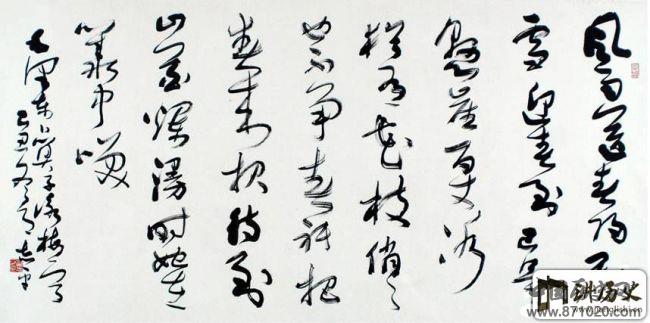 风雨送春归飞
雪迎春到已是
悬崖百丈冰
犹有花枝俏〻
也不争春祇把
春来报待到
山花烂漫时她在
丛中笑
毛泽东卜算子咏梅一首
己丑
讲历史
www.871020.com